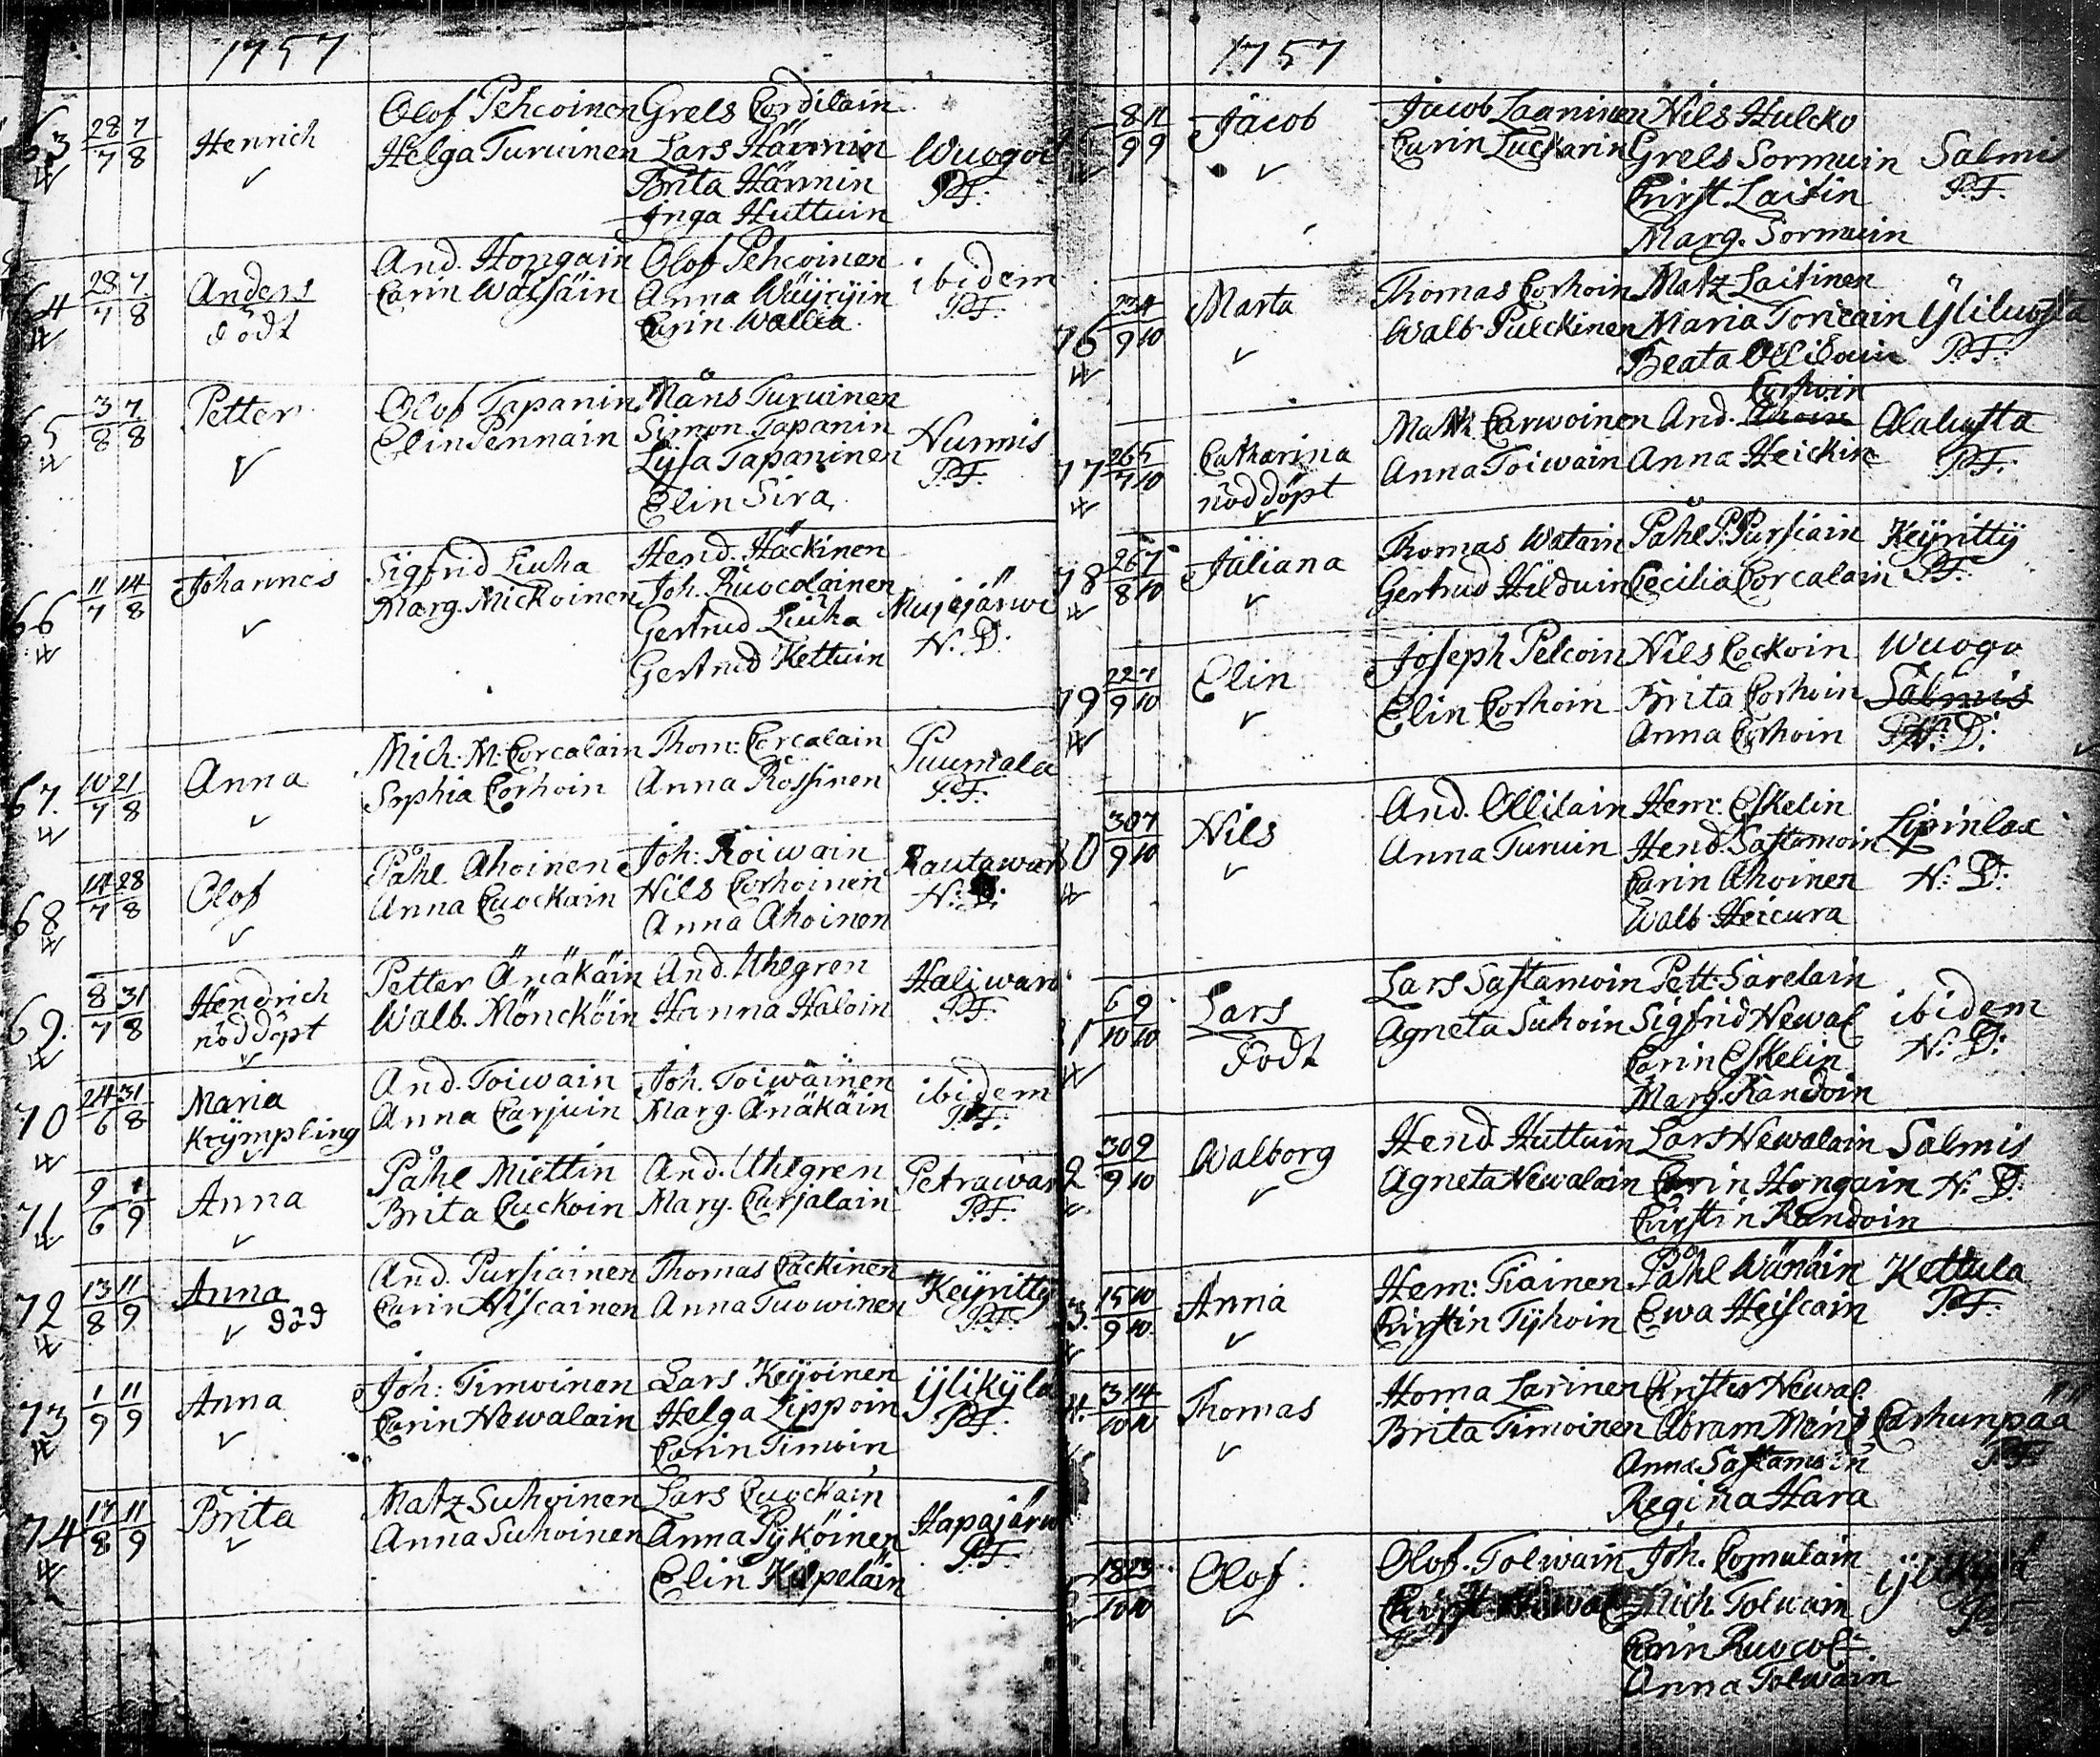 1757
63 28/7 7/8 Henrich Olof Pehcoinen Grels Cordilain
Helga Turuinen Lars Hännin
Brita Hännin P.F.
Inga Huttuin
64 28/7 7/8 Anders And. Hongain Olof Pehcoinen ibidem
dödt Carin Wäisäin Anna P.F.
Carin
65 3/8 7/8 Petter Olof Tapanin Måns Turuinen
Elin Pennain Simon Tapanin Nurmis
Lijsa Tapaninen P.F.
Elin Sira
66 11/7 14/8 Johannes Sigfrid Liuha Hend. Häckinen
Marg. Mickoinen Joh. Ruocolainen Mujejärwi
Gertrud Liuha N. D.
Gertrud Kettuin
67. 10/7 21/8 Anna Mich: M: Corcalain Thom: Corcalain Puumala
Sophia Corhoin Anna Rössinen P.F.
68 14/7 28/8 Olof Påhl Ahoinen Joh: Roiwain Rautawar
Anna Cuockain Nils Corhoinen N: D:
Anna Ahoinen
69. 8/7 31/8 Hendrich Petter Änäkäin And. Uhlgren Haliwar
nöd döpt Walb. Möncköin Hanna Haloin P.F.
70 24/6 31/8 Maria And. Toiwain Joh. Toiwainen ibidem
Krympling Anna Carjuin Marg. Änäkäin P.F.
71 9/6 1/9 Anna Påhl Miettin And. Uhlgren Petrawar
Brita Cuckoin Marg. Carjalain P.F.
72 13/8 11/9 Anna And. Pursiainen Thomas Cäckinen Keyritty
död Carin Niscainen Anna Tuowinen P.F.
73 1/9 11/9 Anna Joh: Timoinen Lars Keyoinen ijlikylä
Carin Newalain Helga Lippoin P.F.
Carin Timoin
74 17/8 11/9 Brita Matz Suhoinen Lars Cuockain
Anna Suhoinen Anna Pyköinen Hapajärw
Elin P.F.
1757
8/9 11/9 Jacob Jacob Laaninen Nils Hulcko
Carin Luckarin Grels Sormuin Salmis
Kirst. Laitin P.F.
Marg. Sormuin
76 23/9 4/10 Marta Thomas Corhoin Matz Laitinen
Walb Pulckinen Maria Toricain ijliluosta
Beata Ollilain P.F.
Corhoin
77 26/7 5/10 Catharina Matth Carwoinen And. Ahoin Alaluosta
nöd döpt Anna Toiwain Anna Heickin P.F.
78 26/8 7/10 Juliana Thomas Watain Påhl P: Pursiain Keyritty
Gertrud Hilduin Cecilia Corcalain P.F.
79 22/9 7/10 Elin Joseph Pelcoin Nils Cockoin Wuogo
Elin Corhoin Brita Corhoin Salmis
Anna Corhoin N: D:
30/9 7/10 Nils And. Ollilain Hem: Eskelin
Anna Turuin Hend. Sastamoin Lipinlax
Carin Ahoinen N: D:
Walb Heicura
6/10 9/10 Lars Lars Sastamoin Pett: Sarelain ibidem
Födt Agneta Suhoin Sigfrid Newal N. D:
Carin Eskelin
Marg. Randoin
2 30/9 9/10 Walborg Hend. Huttuin Lars Newalain Salmis
Agneta Newalain Carin Hongain N: D.
Cirstin Randoin
3. 15/9 10/10 Anna Hem: Tiainen Påhl Wänäin Kettula
Kirstin Tyhoin Ewa Heiscain P.F.
3/10 14/10 Thomas Homa Larinen Krister Newal
Brita Timoinen Abram Carhunpää
Anna Sastamoin P.F.
Regina Hara
18/10 23/10 Olof Olof Tolwain Joh. Comulain
Mich. Tolwain
Carin Ruocol
Anna Tolwain